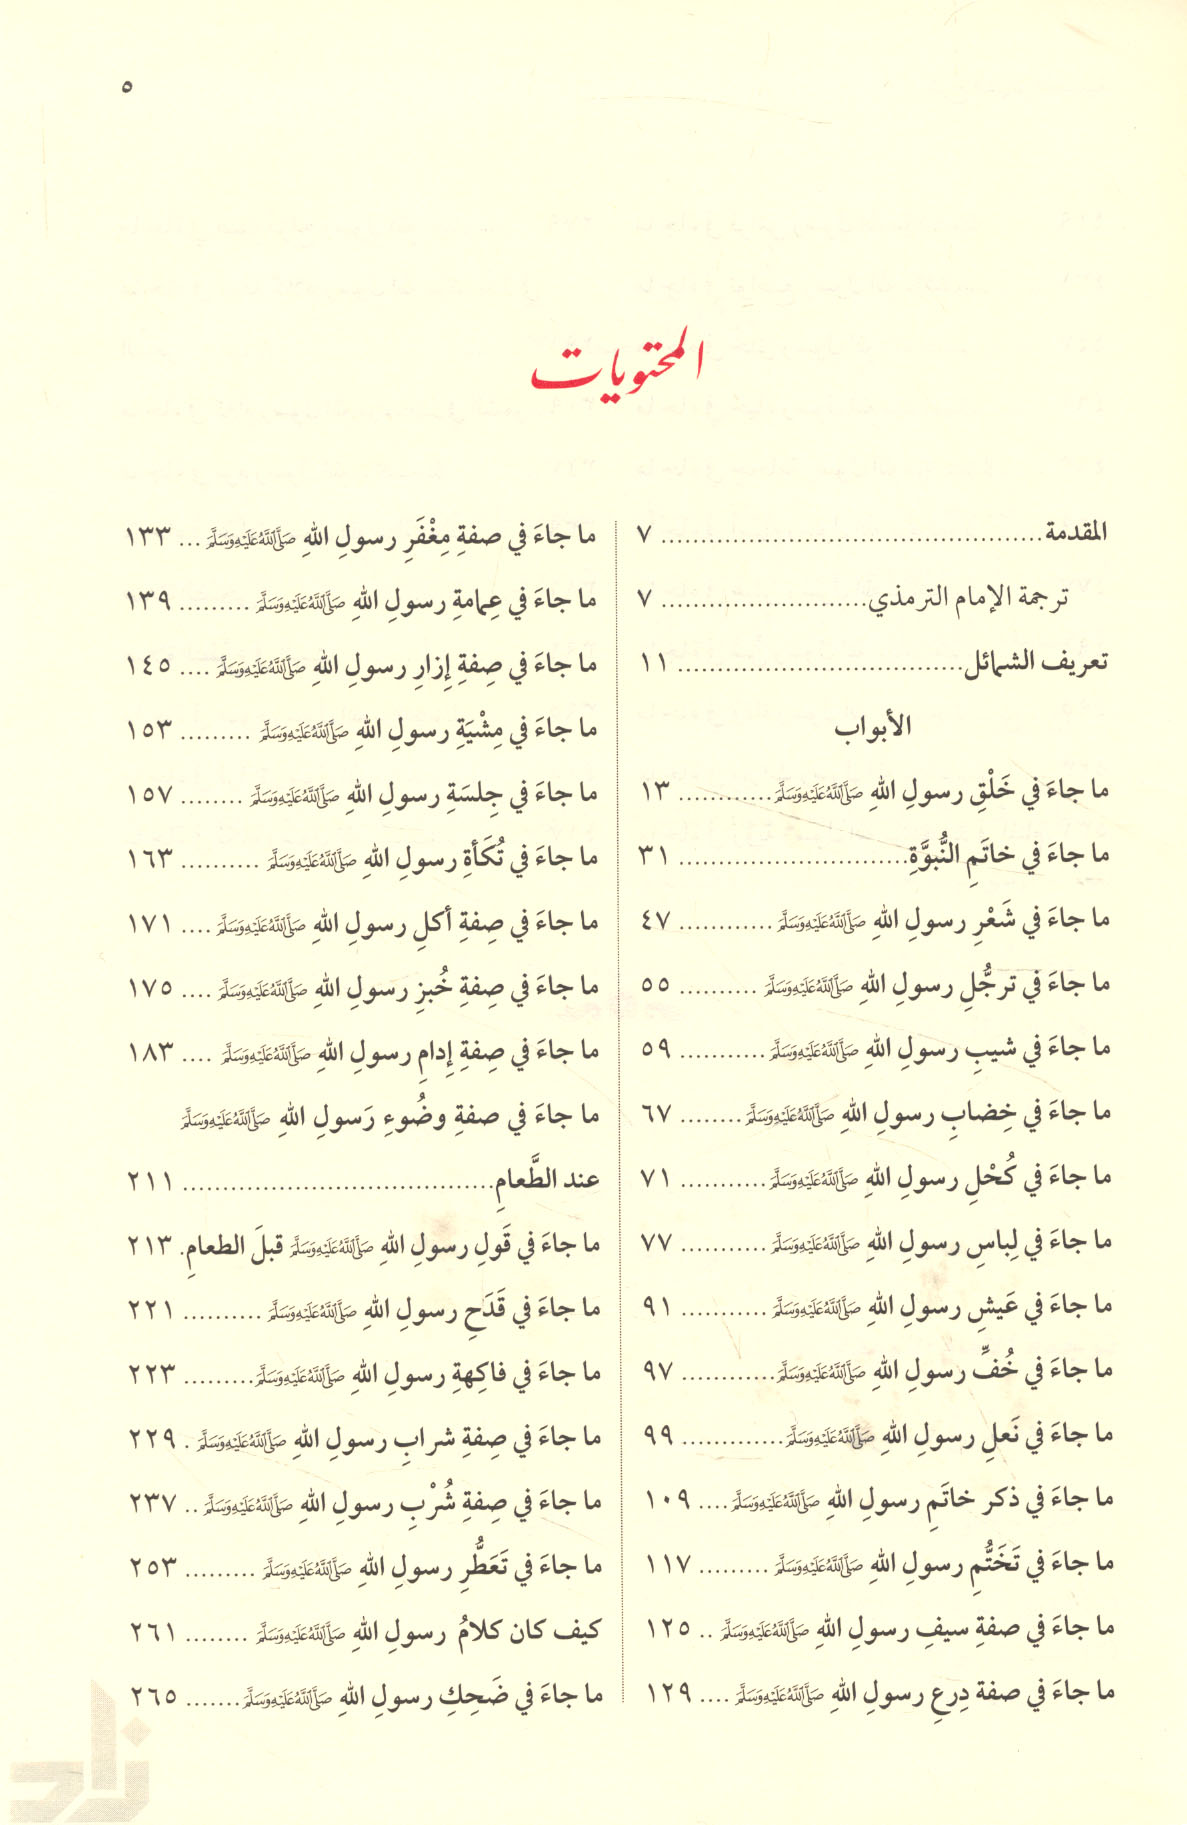 ٥
المحتويات
المقدمة ................................................ ٧
ترجمة الإمام الترمذي .......................... ٧
تعريف الشمائل .................................... ١١
الأبواب
ما جاءَ في خَلْقِ رسولِ اللهِ ﷺ ............ ١٣
ما جاءَ في خاتَمِ النُّبوَّةِ ............................. ٣١
ما جاءَ في شَعْرِ رسولِ اللهِ ﷺ ............ ٤٧
ما جاءَ في ترجُّلِ رسولِ اللهِ ﷺ .......... ٥٥
ما جاءَ في شيبِ رسولِ اللهِ ﷺ ........... ٥٩
ما جاءَ في خِضابِ رسولِ اللهِ ﷺ ........ ٦٧
ما جاءَ في كُحْلِ رسولِ اللهِ ﷺ ........... ٧١
ما جاءَ في لِباسِ رسولِ اللهِ ﷺ ........... ٧٧
ما جاءَ في عَيشِ رسولِ اللهِ ﷺ ........... ٩١
ما جاءَ في خُفِّ رسولِ اللهِ ﷺ ............ ٩٧
ما جاءَ في نَعلِ رسولِ اللهِ ﷺ ............. ٩٩
ما جاءَ في ذكر خاتَمِ رسولِ اللهِ ﷺ .... ١٠٩
ما جاءَ في تَخَتُّمِ رسولِ اللهِ ﷺ ......... ١١٧
ما جاءَ في صفةِ سيفِ رسولِ اللهِ ﷺ .. ١٢٥
ما جاءَ في صفة دِرعِ رسولِ اللهِ ﷺ .... ١٢٩
ما جاءَ في صفةِ مِغْفَرِ رسولِ اللهِ ﷺ ... ١٣٣
ما جاءَ في عِمامةِ رسولِ اللهِ ﷺ ......... ١٣٩
ما جاءَ في صِفةِ إزارِ رسولِ اللهِ ﷺ .... ١٤٥
ما جاءَ في مِشْيَةِ رسولِ اللهِ ﷺ ......... ١٥٣
ما جاءَ في جِلسَةِ رسولِ اللهِ ﷺ ........ ١٥٧
ما جاءَ في تُكَأةِ رسولِ اللهِ ﷺ .......... ١٦٣
ما جاءَ في صِفةِ أكلِ رسولِ اللهِ ﷺ .... ١٧١
ما جاءَ في صِفةِ خُبزِ رسولِ اللهِ ﷺ .... ١٧٥
ما جاءَ في صِفةِ إِدامِ رسولِ اللهِ ﷺ .... ١٨٣
ما جاءَ في صفةِ وضُوءِ رَسولِ اللهِ ﷺ
عند الطَّعامِ ........................................ ٢١١
ما جاءَ في قَولِ رسولِ اللهِ ﷺ قبلَ الطعامِ . ٢١٣
ما جاءَ في قَدَحِ رسولِ اللهِ ﷺ .......... ٢٢١
ما جاءَ في فاكِهةِ رسولِ اللهِ ﷺ ......... ٢٢٣
ما جاءَ في صِفةِ شرابِ رسولِ اللهِ ﷺ . ٢٢٩
ما جاءَ في صِفةِ شُرْبِ رسولِ اللهِ ﷺ .. ٢٣٧
ما جاءَ في تَعَطُّرِ رسولِ اللهِ ﷺ ......... ٢٥٣
كيف كان كلامُ رسولِ اللهِ ﷺ ........ ٢٦١
ما جاءَ في ضَحِكِ رسولِ اللهِ ﷺ ....... ٢٦٥
زاد